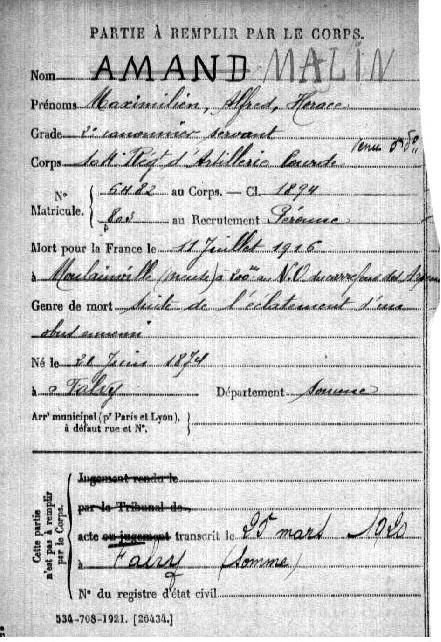 PARTIE À REMPLIR PAR LE CORPS.
Nom AMAND MALIN
Prénoms Maximilien, Alfred, Horace
Grade 2e canonnier servant
Corps Régt d'Artillerie Lourde
N° Matricule. 5482 au Corps. — Cl. 1894
803 au Recrutement Péronne
Mort pour la France le 11 Juillet 1916
à Moulainville (Meuse) à 200m au N.O. du carrefour des
Genre de mort suite de l'éclatement d'un
obus ennemi
Né le Juin 1874
à Falvy Département Somme
Arrt municipal (pr Paris et Lyon),
à défaut rue et N°.
Cette partie n'est pas à remplir par le Corps.
Jugement rendu le
par le Tribunal de
acte ou jugement transcrit le 25 mars 1920
à Falvy (Somme)
N° du registre d'état civil
534-708-1921. [26434.]